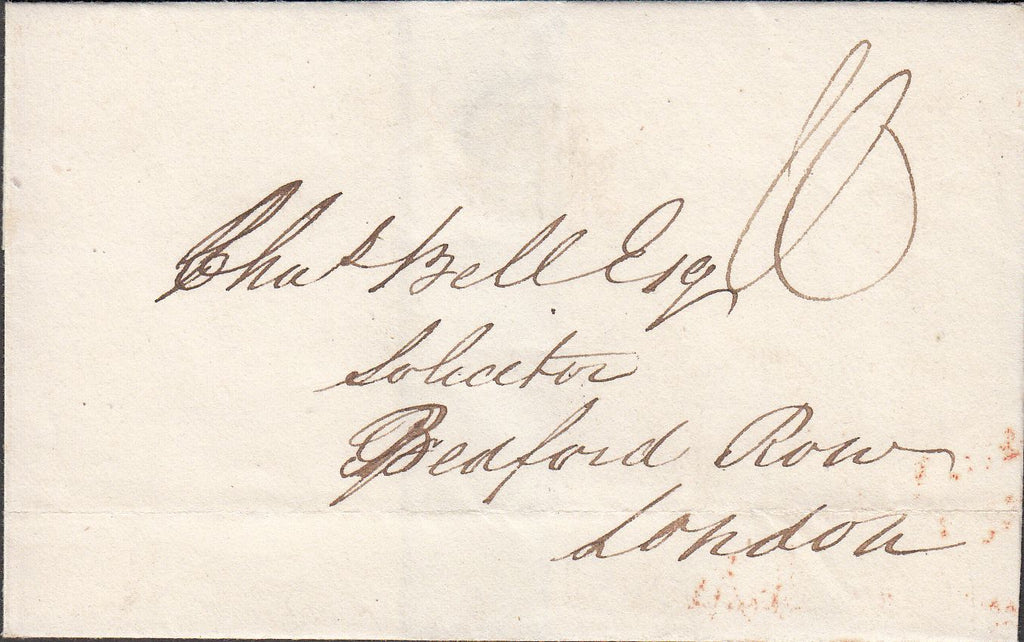 Chas Bell Esq
Solicitor
Bedford Row
London